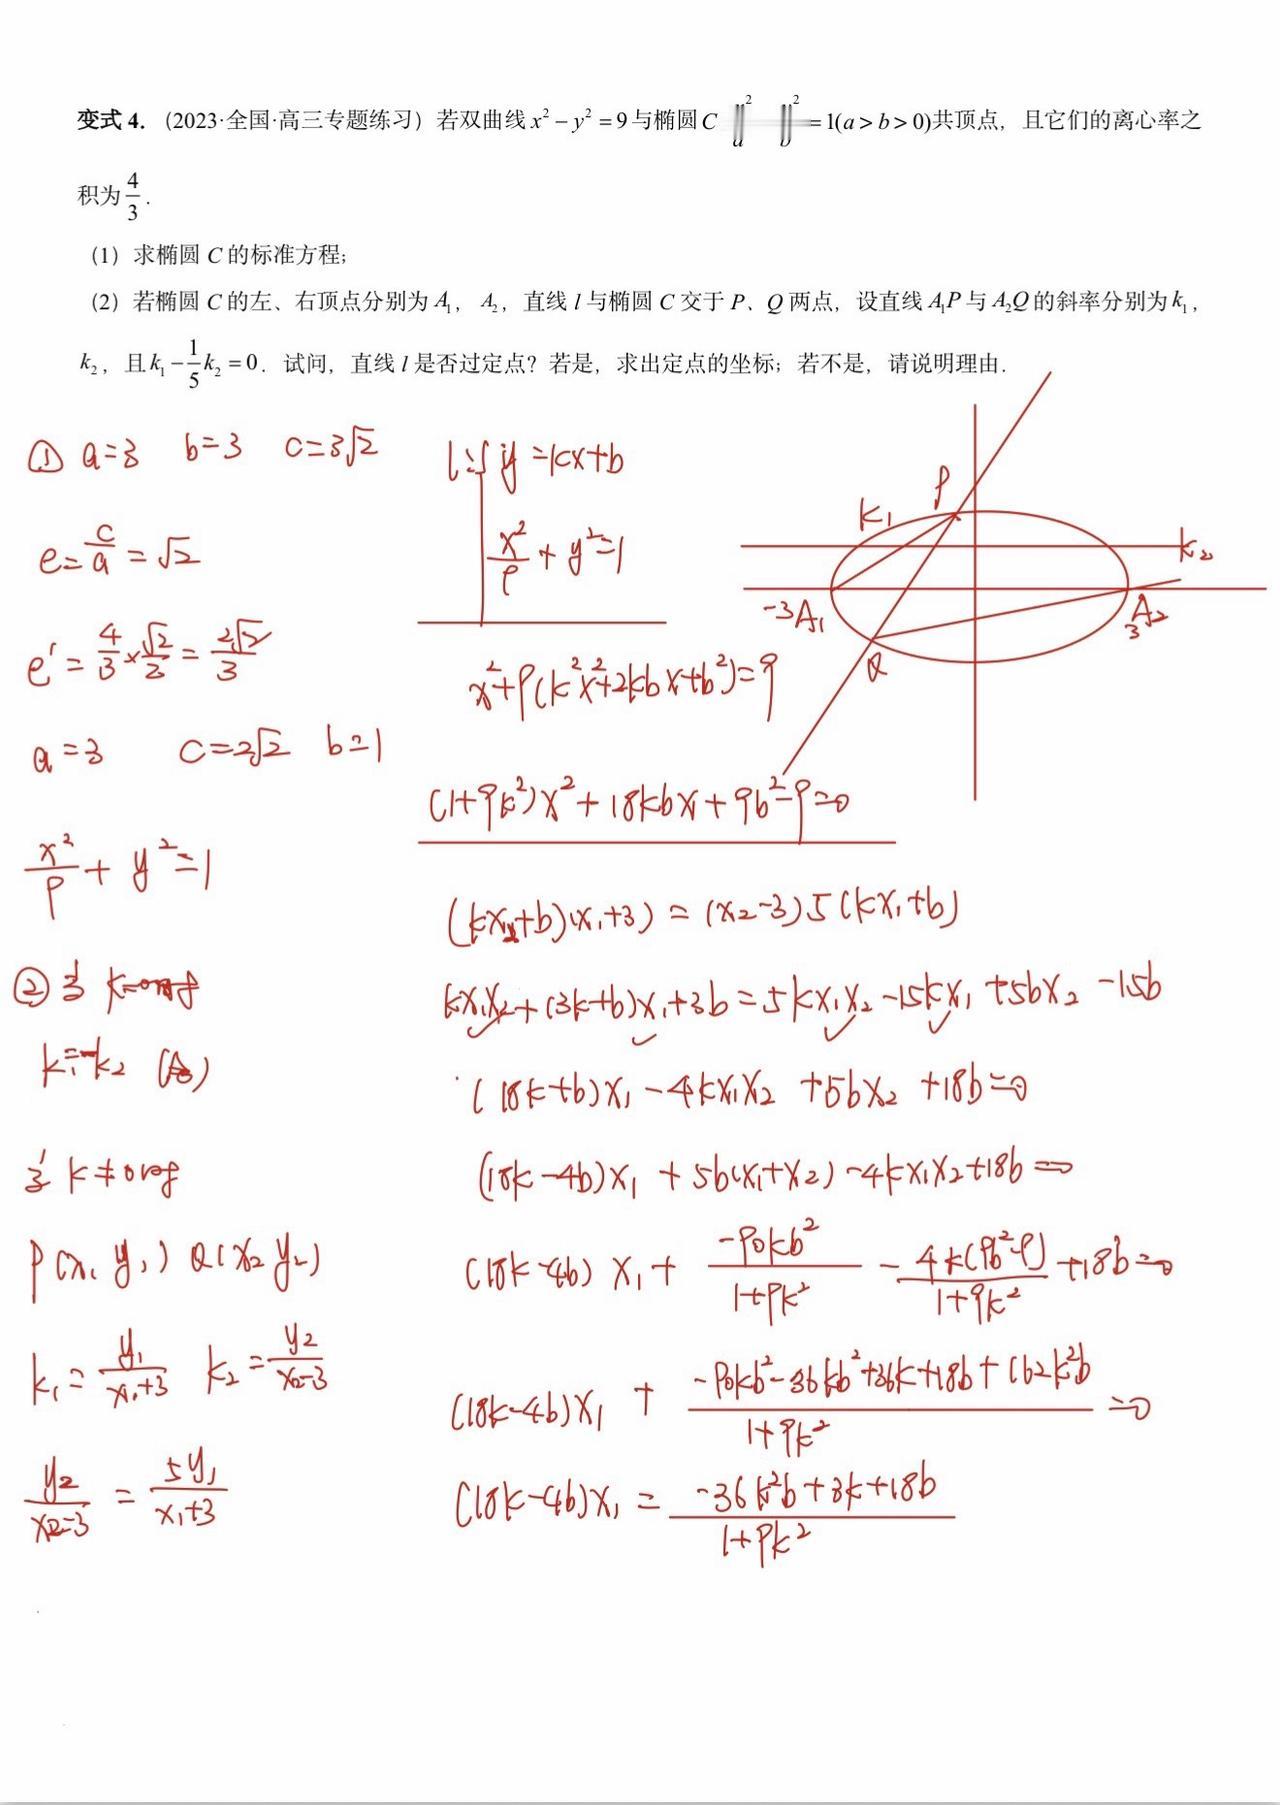 变式 4.(2023·全国·高三专题练习)若双曲线 x² − y² = 9 与椭圆 C  = 1(a > b > 0)共顶点,且它们的离心率之
积为 4/3 .
(1)求椭圆 C 的标准方程;
(2)若椭圆 C 的左、右顶点分别为 A₁, A₂,直线 l 与椭圆 C 交于 P、Q 两点,设直线 A₁P 与 A₂Q 的斜率分别为 k₁,
k₂,且 k₁ − 1/5 k₂ = 0.试问,直线 l 是否过定点?若是,求出定点的坐标;若不是,请说明理由.
① a=3 b=3 c=3√2
e=c/a=√2
e'=4/3×√2/2=2√2/3
a=3 c=2√2 b=1
x²/9+y²=1
②
k₁=-k₂
k≠0时
P(x₁ y₁) Q(x₂ y₂)
k₁=y₁/(x₁+3) k₂=y₂/(x₂-3)
y₂/(x₂-3)=5y₁/(x₁+3)
l: y=kx+b
x²/9+y²=1
x²+9(k²x²+2kbx+b²)=9
(1+9k²)x²+18kbx+9b²-9=0
(kx₂+b)(x₁+3)=(x₂-3)5(kx₁+b)
kx₁x₂+(3k+b)x₁+3b=5kx₁x₂-15kx₁+5bx₂-15b
(18k+b)x₁-4kx₁x₂+5bx₂+18b=0
(18k-4b)x₁+5b(x₁+x₂)-4kx₁x₂+18b=0
(18k-4b)x₁+(-90kb²)/(1+9k²)-4k(9b²-9)/(1+9k²)+18b=0
(18k-4b)x₁+(-90kb²-36kb²+36k+18b+162k²b)/(1+9k²)=0
(18k-4b)x₁=(-36k²b+3k+18b)/(1+9k²)
P
k₁
k₂
-3 A₁
3 A₂
Q